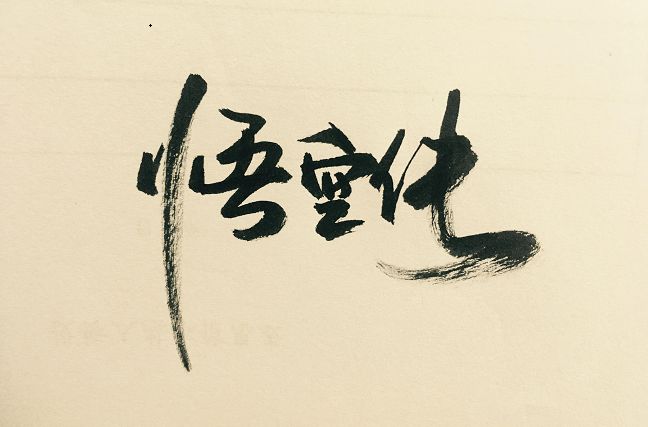 悟空传